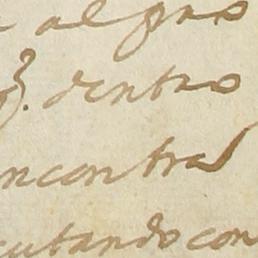 al paso
dentro
ncontral
cutando con